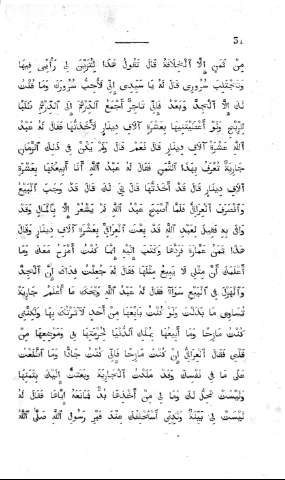 ٥٤
مِنْ ثَمَنٍ إِلَّا الْخِلَافَةُ قَالَ تَقُولُ هَذَا لِتُغْرِيَنِي لِي رَأْيِي فِيهَا
وَتَجْتَلِبَ سُرُورِي قَالَ لَهُ يَا سَيِّدِي إِنِّي لَأُحِبُّ سُرُورَكَ وَمَا قُلْتُ
لَكَ إِلَّا الْجِدَّ وَبَعْدُ فَإِنِّي تَاجِرٌ أَجْمَعُ الدِّرْهَمَ إِلَى الدِّرْهَمِ طَلَبًا
لِلرِّبْحِ وَلَوْ أَعْطَيْتَنِيهَا بِعَشَرَةِ آلَافِ دِينَارٍ لَأَخَذْتُهَا فَقَالَ لَهُ عَبْدُ
اللّٰهِ عَشَرَةُ آلَافِ دِينَارٍ قَالَ نَعَمْ قَالَ وَلَمْ يَكُنْ فِي ذَلِكَ الزَّمَانِ
جَارِيَةٌ تُعْرَفُ بِهَذَا الثَّمَنِ فَقَالَ لَهُ عَبْدُ اللّٰهِ أَنَا أَبِيعُكَهَا بِعَشَرَةِ
آلَافِ دِينَارٍ قَالَ قَدْ أَخَذْتُهَا قَالَ هِيَ لَكَ قَالَ قَدْ وَجَبَ الْبَيْعُ
وَانْصَرَفَ الْعِرَاقِيُّ فَلَمَّا أَصْبَحَ عَبْدُ اللّٰهِ لَمْ يَشْعُرْ إِلَّا بِالْمَالِ وَقَدْ
وَافَى بِهِ فَقِيلَ لِعَبْدِ اللّٰهِ قَدْ بَعَثَ الْعِرَاقِيُّ بِعَشَرَةِ آلَافِ دِينَارٍ وَقَالَ
هَذَا ثَمَنُ عُمَارَةَ فَرَدَّهَا وَكَتَبَ إِلَيْهِ إِنَّمَا كُنْتُ أَمْزَحُ مَعَكَ وَمَا
أُعْلِمُكَ أَنَّ مِثْلِي لَا يَبِيعُ مِثْلَهَا فَقَالَ لَهُ جُعِلْتُ فِدَاكَ إِنَّ الْجِدَّ
وَالْهَزْلَ فِي الْبَيْعِ سَوَاءٌ فَقَالَ لَهُ عَبْدُ اللّٰهِ وَيْحَكَ مَا أَعْلَمُ جَارِيَةً
تُسَاوِي مَا بَذَلْتَ وَلَوْ كُنْتُ بَائِعَهَا مِنْ أَحَدٍ لَآثَرْتُكَ بِهَا وَلَكِنِّي
كُنْتُ مَازِحًا وَمَا أَبِيعُهَا بِمُلْكِ الدُّنْيَا لِحُرْمَتِهَا بِي وَمَوْضِعِهَا مِنْ
قَلْبِي فَقَالَ الْعِرَاقِيُّ إِنْ كُنْتَ مَازِحًا فَإِنِّي كُنْتُ جَادًّا وَمَا اطَّلَعْتُ
عَلَى مَا فِي نَفْسِكَ وَقَدْ مَلَكْتُ الْجَارِيَةَ وَبَعَثْتُ إِلَيْكَ بِثَمَنِهَا
وَلَيْسَتْ تَحِلُّ لَكَ وَمَا لِي مِنْ أَخْذِهَا بُدٌّ فَمَانَعَهُ إِيَّاهَا فَقَالَ لَهُ
لَيْسَتْ لِي بَيِّنَةٌ وَلَكِنِّي أَسْتَحْلِفُكَ عِنْدَ قَبْرِ رَسُولِ اللّٰهِ صَلَّى اللّٰهُ